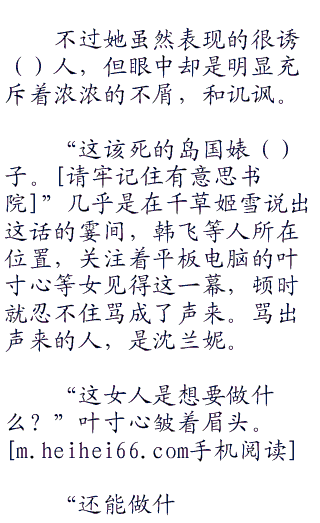 不过她虽然表现的很诱
（）人，但眼中却是明显充
斥着浓浓的不屑，和讥讽。
“这该死的岛国婊（）
子。[请牢记住有意思书
院]”几乎是在千草姬雪说出
这话的霎间，韩飞等人所在
位置，关注着平板电脑的叶
寸心等女见得这一幕，顿时
就忍不住骂成了声来。骂出
声来的人，是沈兰妮。
“这女人是想要做什
么？”叶寸心皱着眉头。
[m.heihei66.com手机阅读]
“还能做什